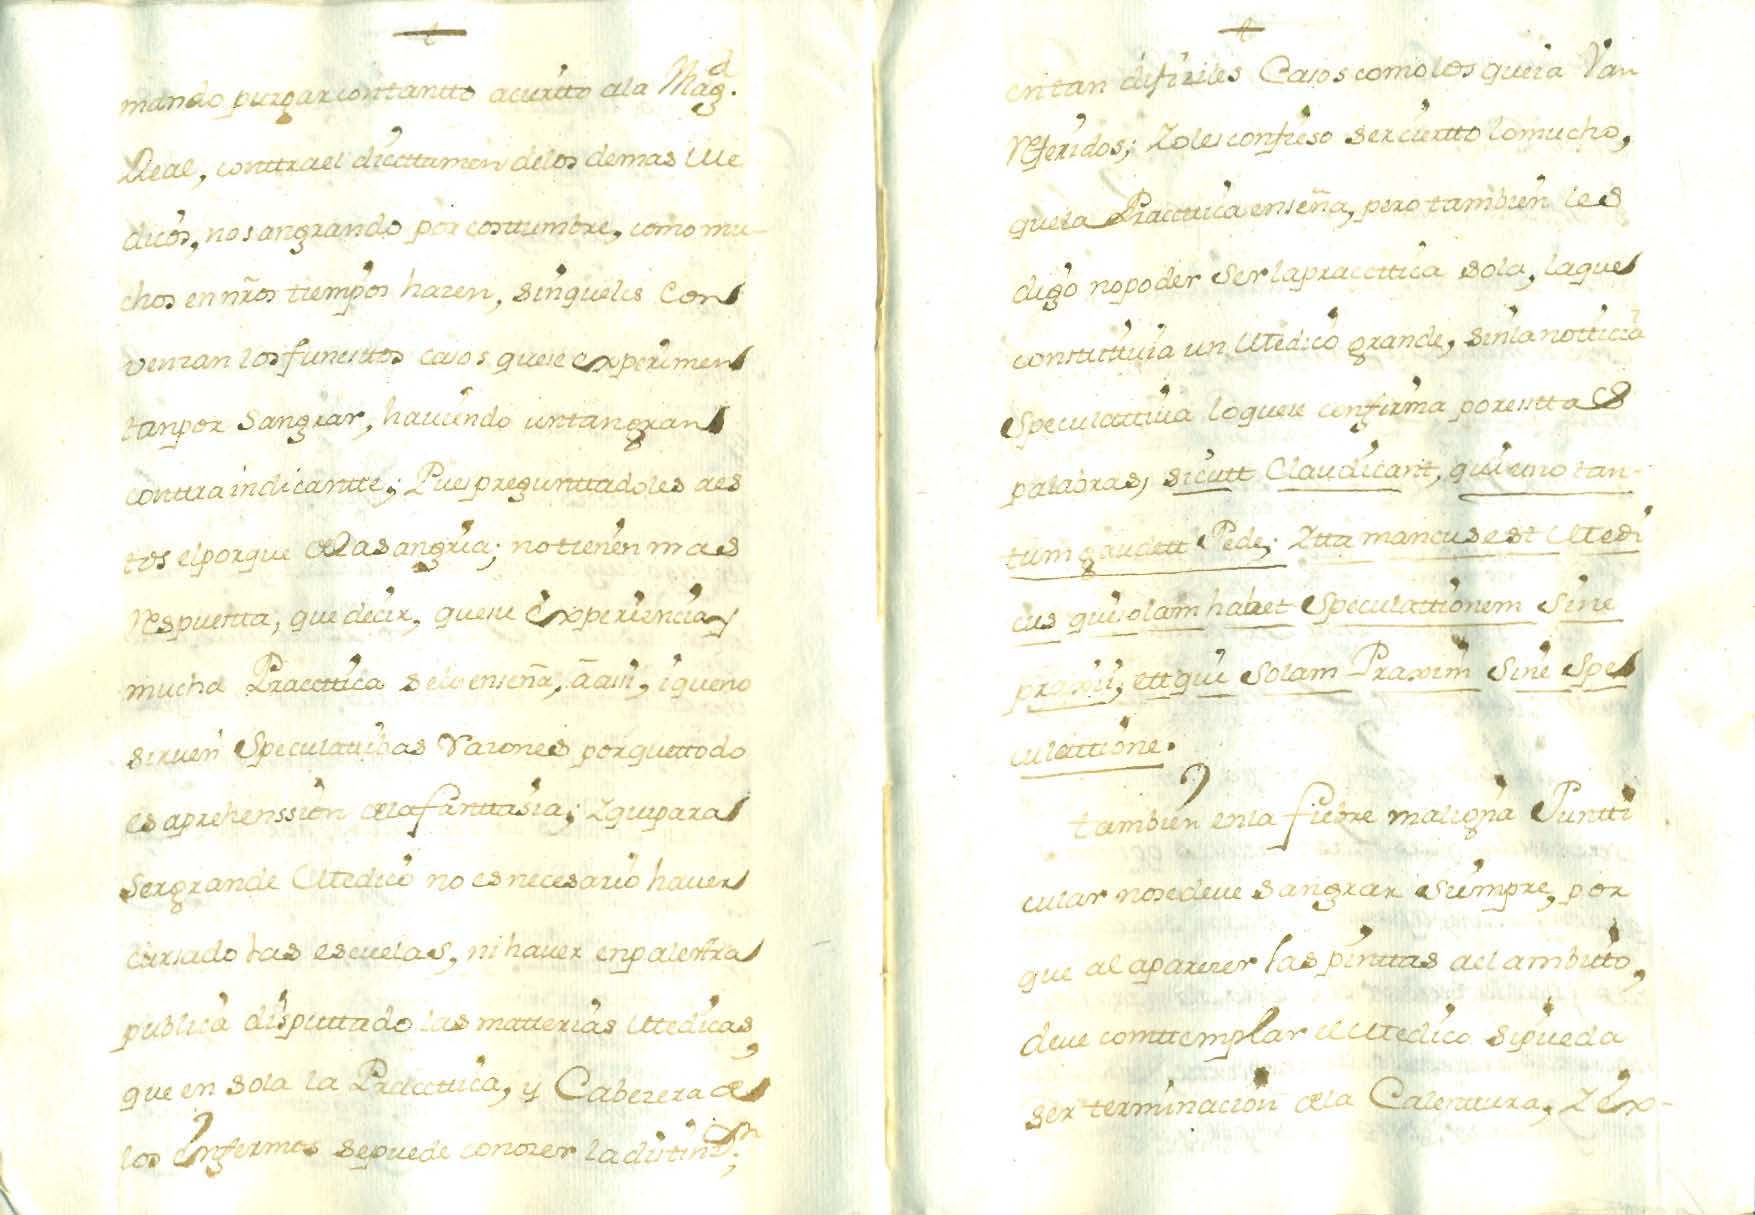 mando purgar con tantto aciertto ala Mag.d
Real, conttra el dicttamen delos demas Me
dicos, no sangrando por costtumbre, como mu-
chos en nr̃os tiempos hazen, sin queles Con
venzan los funesttos casos que se experimen
tan por Sangrar, haviendo un tan gran
conttra indicantte; Pues pregunttadoles a es
tos el porque dela sangria; no tienen mas
respuestta, que decir, que su experiencia y
mucha Practtica selo enseña, a assi, i que no
sirven Speculatibas razones porque ttodo
es aprehenssion dela fanttasia; Z qui para
Ser grande Medico no es necesario haver
cursado las escuelas, ni haver en palestra
publica disputtado las matterias Medicas,
que en sola la Practtica, y Cabezera de
los Enfermos se puede conozer la distinz.on;
en tan dificiles Casos como los que ia van
referidos; Zo les confieso ser ciertto lo mucho,
que la Practtica enseña, pero tambien les
digo no poder Ser la practtica sola, la que
constittuia un Medico grande, sin la notticia
Speculattiva lo que se confirma por esttas
palabras, sicutt Claudicant, qui uno tan-
tum gaudett Pede; Ztta mancus est Medi
cus qui solam habet Speculattionem Sine
praxii, ett qui Solam Praxim Sine Spe
culattione.
tambien en la fiebre maligna Puntti
cular no se deve Sangrar Siempre, por
que al aparezer las pinttas al ambitto,
deve conttemplar el Medico si pueda
ser terminacion dela Calenttura, Z ex-